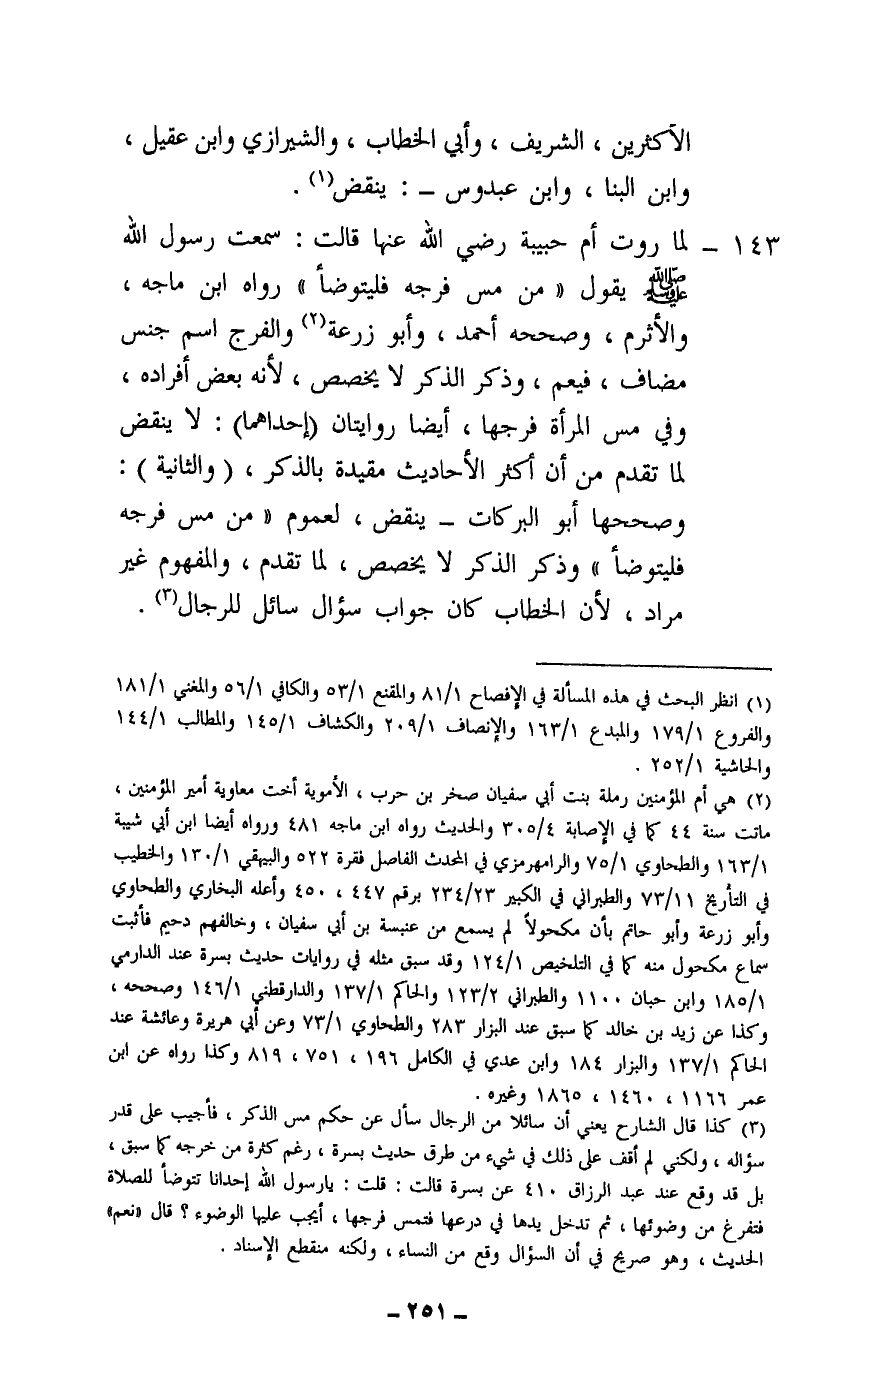 الأكثرين ، الشريف ، وأبي الخطاب ، والشيرازي وابن عقيل ،
وابن البنا ، وابن عبدوس ــ : ينقض(١) .
١٤٣ ــ لما روت أم حبيبة رضي الله عنها قالت : سمعت رسول الله
ﷺ يقول « من مس فرجه فليتوضأ » رواه ابن ماجه ،
والأثرم ، وصححه أحمد ، وأبو زرعة(٢) والفرج اسم جنس
مضاف ، فيعم ، وذكر الذكر لا يخصص ، لأنه بعض أفراده ،
وفي مس المرأة فرجها ، أيضا روايتان (إحداهما) : لا ينقض
لما تقدم من أن أكثر الأحاديث مقيدة بالذكر ، ( والثانية ) :
وصححها أبو البركات ــ ينقض ، لعموم « من مس فرجه
فليتوضأ » وذكر الذكر لا يخصص ، لما تقدم ، والمفهوم غير
مراد ، لأن الخطاب كان جواب سؤال سائل للرجال(٣) .
(١) انظر البحث في هذه المسألة في الإفصاح ٨١/١ والمقنع ٥٣/١ والكافي ٥٦/١ والمغني ١٨١/١
والفروع ١٧٩/١ والمبدع ١٦٣/١ والإنصاف ٢٠٩/١ والكشاف ١٤٥/١ والمطالب ١٤٤/١
والحاشية ٢٥٢/١ .
(٢) هي أم المؤمنين رملة بنت أبي سفيان صخر بن حرب ، الأموية أخت معاوية أمير المؤمنين ،
ماتت سنة ٤٤ كما في الإصابة ٣٠٥/٤ والحديث رواه ابن ماجه ٤٨١ ورواه أيضا ابن أبي شيبة
١٦٣/١ والطحاوي ٧٥/١ والرامهرمزي في المحدث الفاصل فقرة ٥٢٢ والبيهقي ١٣٠/١ والخطيب
في التأريخ ٧٣/١١ والطبراني في الكبير ٢٣٤/٢٣ برقم ٤٤٧ ، ٤٥٠ وأعله البخاري والطحاوي
وأبو زرعة وأبو حاتم بأن مكحولاً لم يسمع من عنبسة بن أبي سفيان ، وخالفهم دحيم فأثبت
سماع مكحول منه كما في التلخيص ١٢٤/١ وقد سبق مثله في روايات حديث بسرة عند الدارمي
١٨٥/١ وابن حبان ١١٠٠ والطبراني ١٢٣/٢ والحاكم ١٣٧/١ والدارقطني ١٤٦/١ وصححه ،
وكذا عن زيد بن خالد كما سبق عند البزار ٢٨٣ والطحاوي ٧٣/١ وعن أبي هريرة وعائشة عند
الحاكم ١٣٧/١ والبزار ١٨٤ وابن عدي في الكامل ١٩٦ ، ٧٥١ ، ٨١٩ وكذا رواه عن ابن
عمر ١١٦٦ ، ١٤٦٠ ، ١٨٦٥ وغيره .
(٣) كذا قال الشارح يعني أن سائلا من الرجال سأل عن حكم مس الذكر ، فأجيب على قدر
سؤاله ، ولكني لم أقف على ذلك في شيء من طرق حديث بسرة ، رغم كثرة من خرجه كما سبق ،
بل قد وقع عند عبد الرزاق ٤١٠ عن بسرة قالت : قلت : يارسول الله إحدانا تتوضأ للصلاة
فتفرغ من وضوئها ، ثم تدخل يدها في درعها فتمس فرجها ، أيجب عليها الوضوء ؟ قال «نعم»
الحديث ، وهو صريح في أن السؤال وقع من النساء ، ولكنه منقطع الإسناد .
ــ ٢٥١ ــ